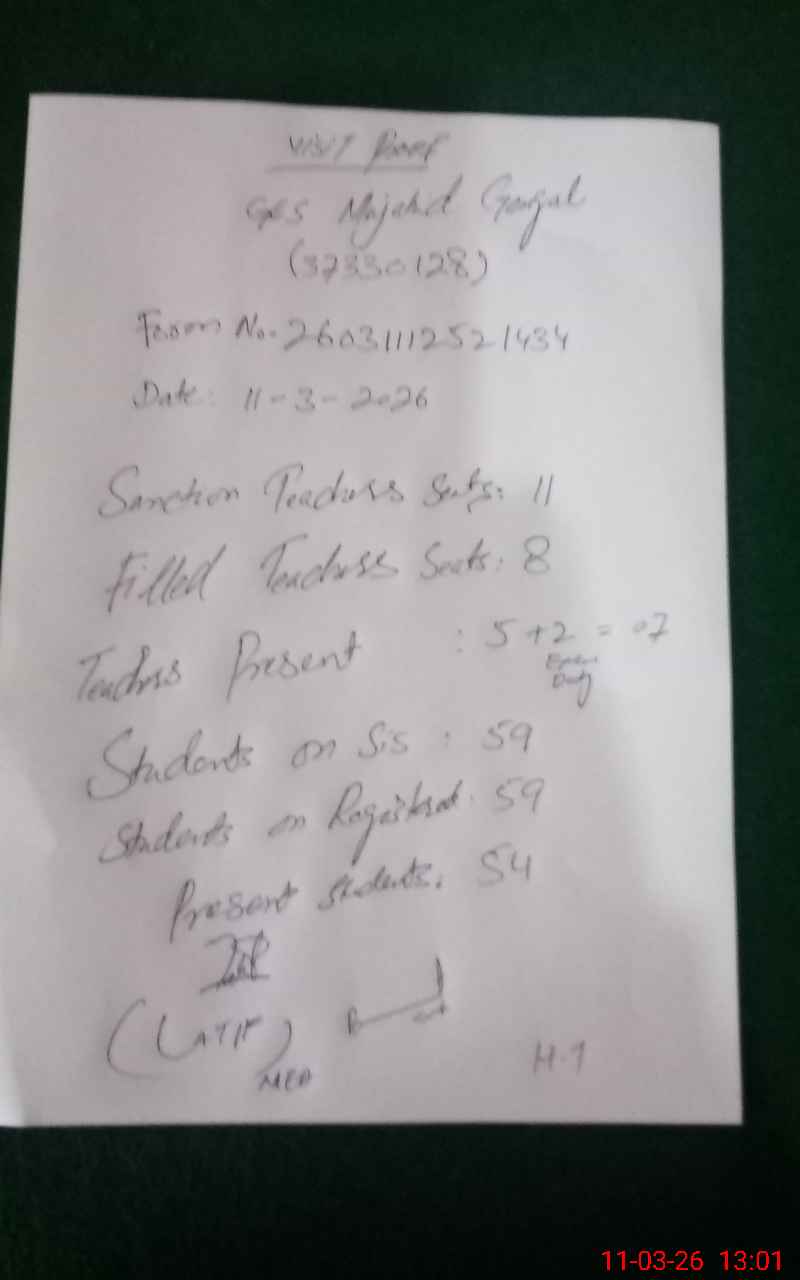 VISIT PROOF
GES Mujahid Gengal
(37330128)
Form No. 260311112521434
Date: 11-3-2026
Sanction Teachers Seats: 11
Filled Teachers Seats: 8
Teachers Present : 5 + 2 = 07
Exam
Duty
Students on Sis : 59
Students on Register: 59
Present students. 54
(LATIF)
MEA
H-T
11-03-26 13:01